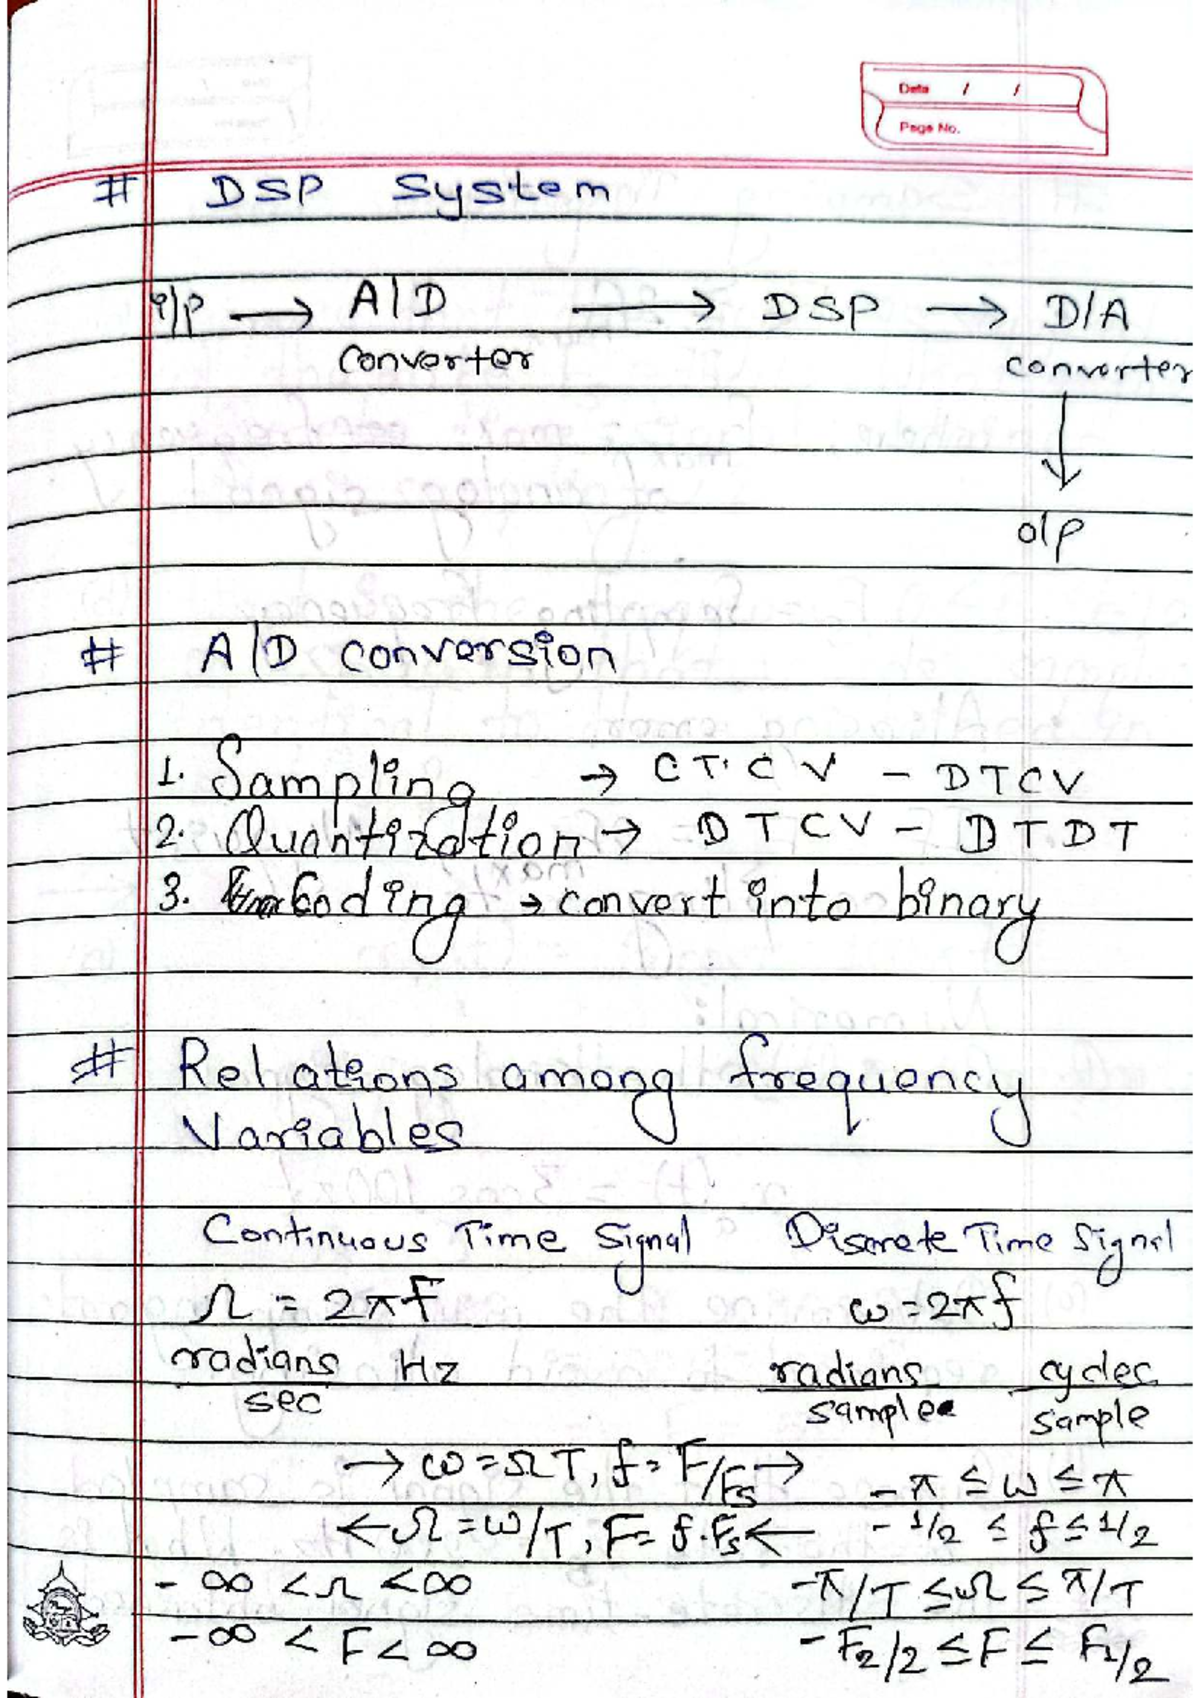 Date / /
Page No.
# DSP System
i/p → A/D → DSP → D/A
Converter converter
↓
o/p
# A/D conversion
1. Sampling → CTCV - DTCV
2. Quantization → DTCV - DTDT
3. Encoding → convert into binary
# Relations among frequency
Variables
Continuous Time Signal Discrete Time Signal
Ω = 2πf ω = 2πf
radians/sec Hz radians/sample cycles/sample
→ ω = ΩT, f = F/Fs → -π ≤ ω ≤ π
← Ω = ω/T, F = f.Fs ← -1/2 ≤ f ≤ 1/2
-∞ < Ω < ∞ -π/T ≤ Ω ≤ π/T
-∞ < F < ∞ -F2/2 ≤ F ≤ F2/2